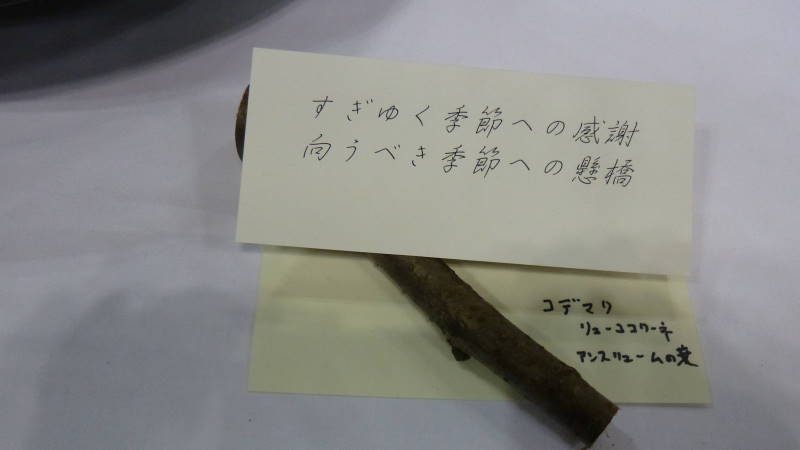 すぎゆく季節への感謝
向うべき季節への懸橋
コデマリ
リューココリーネ
アンスリュームの葉